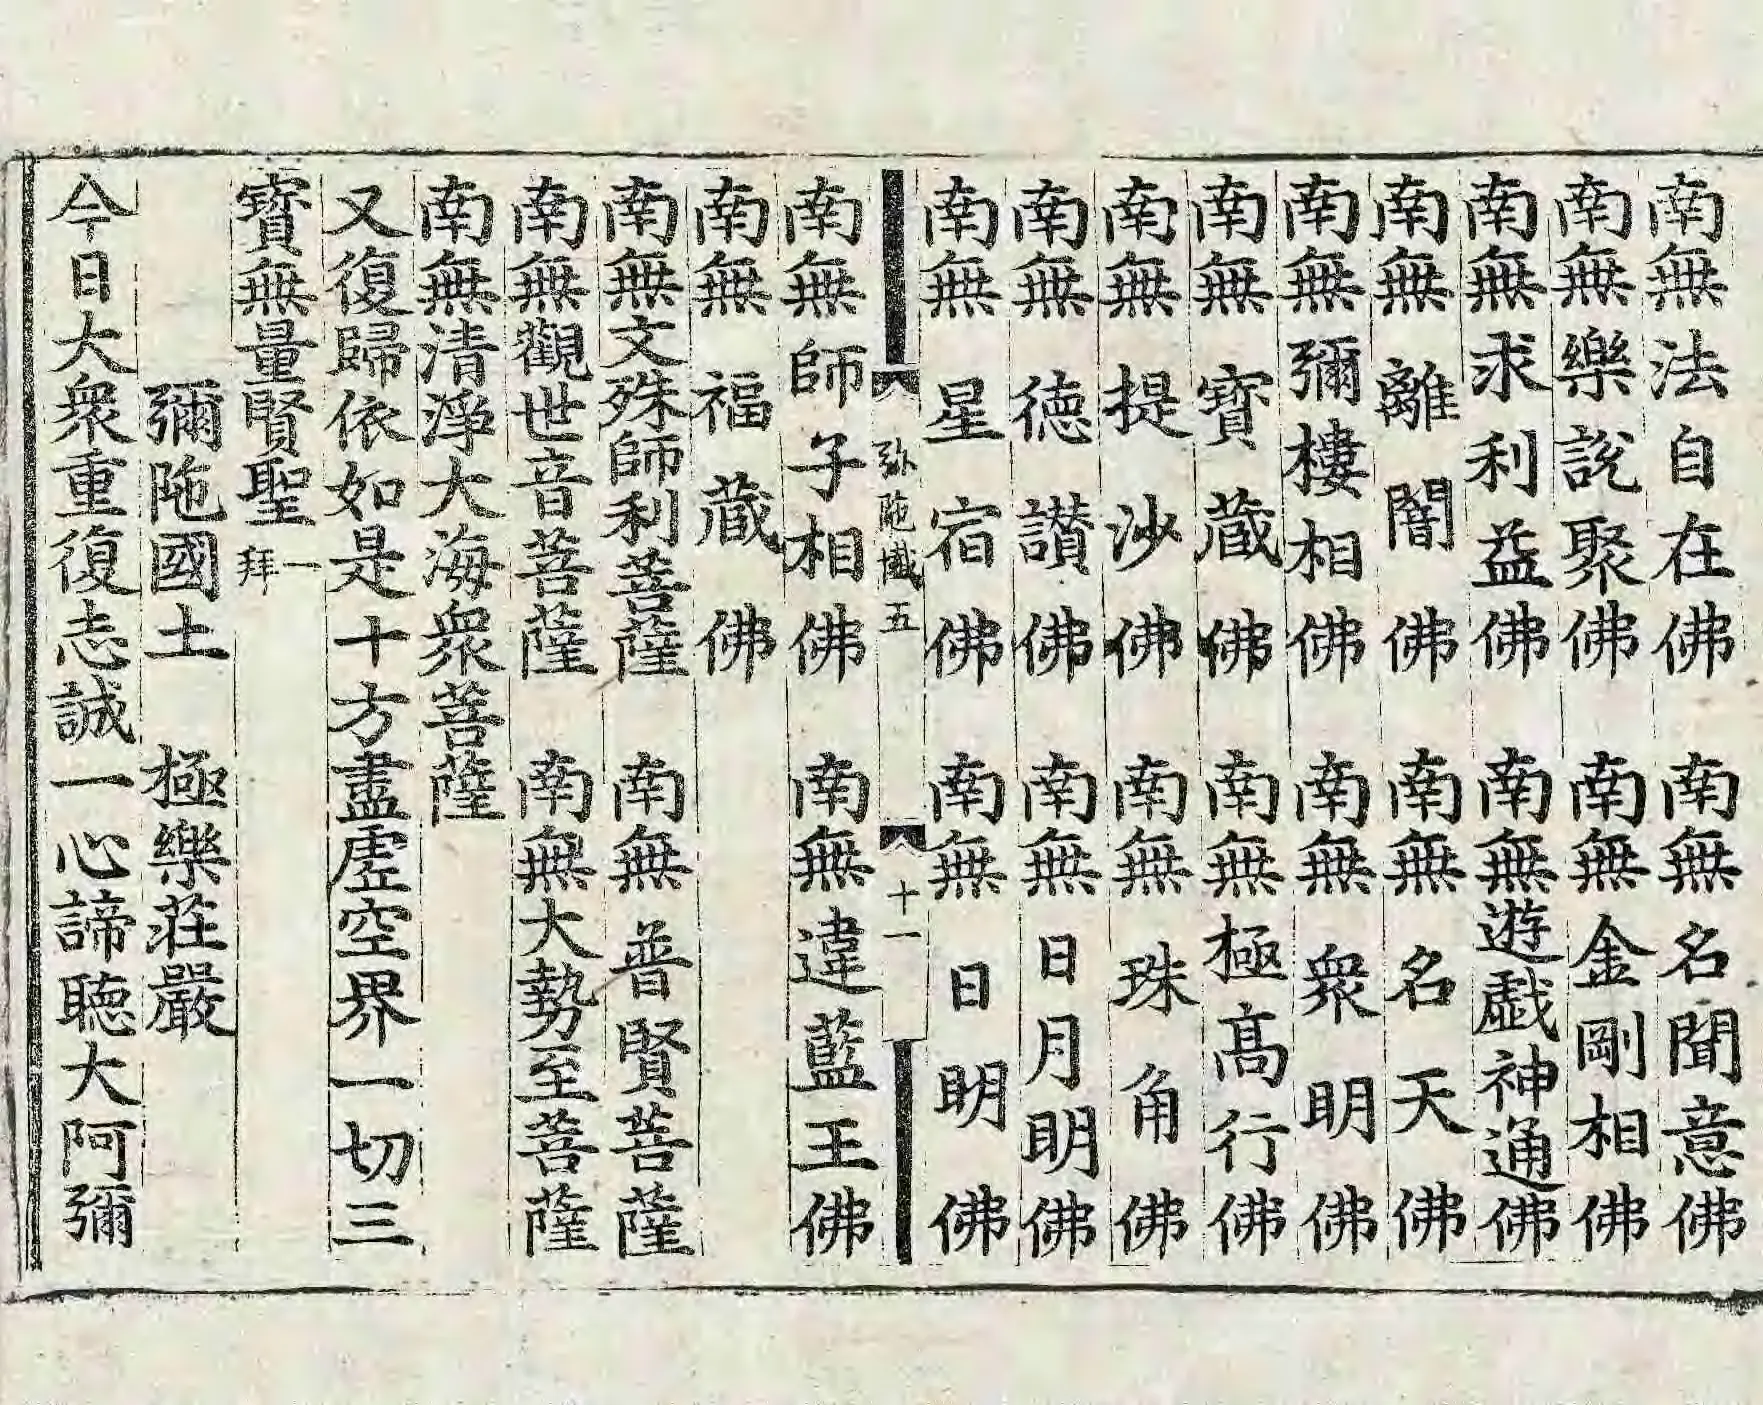 南無法自在佛　南無名聞意佛
南無樂說聚佛　南無金剛相佛
南無求利益佛　南無遊戲神通佛
南無離闇佛　南無名天佛
南無彌樓相佛　南無衆明佛
南無寶藏佛　南無極高行佛
南無提沙佛　南無珠角佛
南無德讃佛　南無日月明佛
南無星宿佛　南無日明佛
弥陁懴五　十一
南無師子相佛　南無違藍王佛
南無福藏佛
南無文殊師利菩薩　南無普賢菩薩
南無觀世音菩薩　南無大勢至菩薩
南無清淨大海衆菩薩
又復歸依如是十方盡虛空界一切三
寶無量賢聖一拜
彌陁國土　極樂莊嚴
今日大衆重復志誠一心諦聽大阿彌